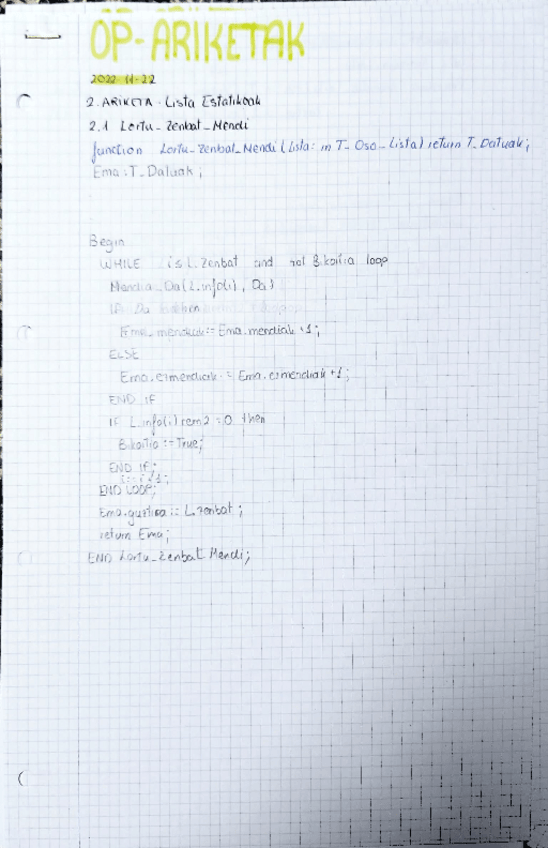 OP-ARIKETAK
2022-11-22
2. ARIKETA - Lista Estatikoak
2.1 Lortu_Zenbat_Mendi
function Lortu_Zenbat_Mendi (Lista: in T_Oso_Lista) return T_Datuak;
Ema: T_Datuak;
Begin
WHILE i≤L.Zenbat and not Bikoitia loop
Mendia_Da(L.info(i), Da)
IF Da
Ema.mendiak:= Ema.mendiak +1;
ELSE
Ema.ezmendiak:= Ema.ezmendiak +1;
END IF
IF L.info(i) rem 2 =0 then
Bikoitia:=True;
END IF;
i:= i+1;
END LOOP;
Ema.guztira:= L.zenbat;
return Ema;
END Lortu_Zenbat_Mendi;